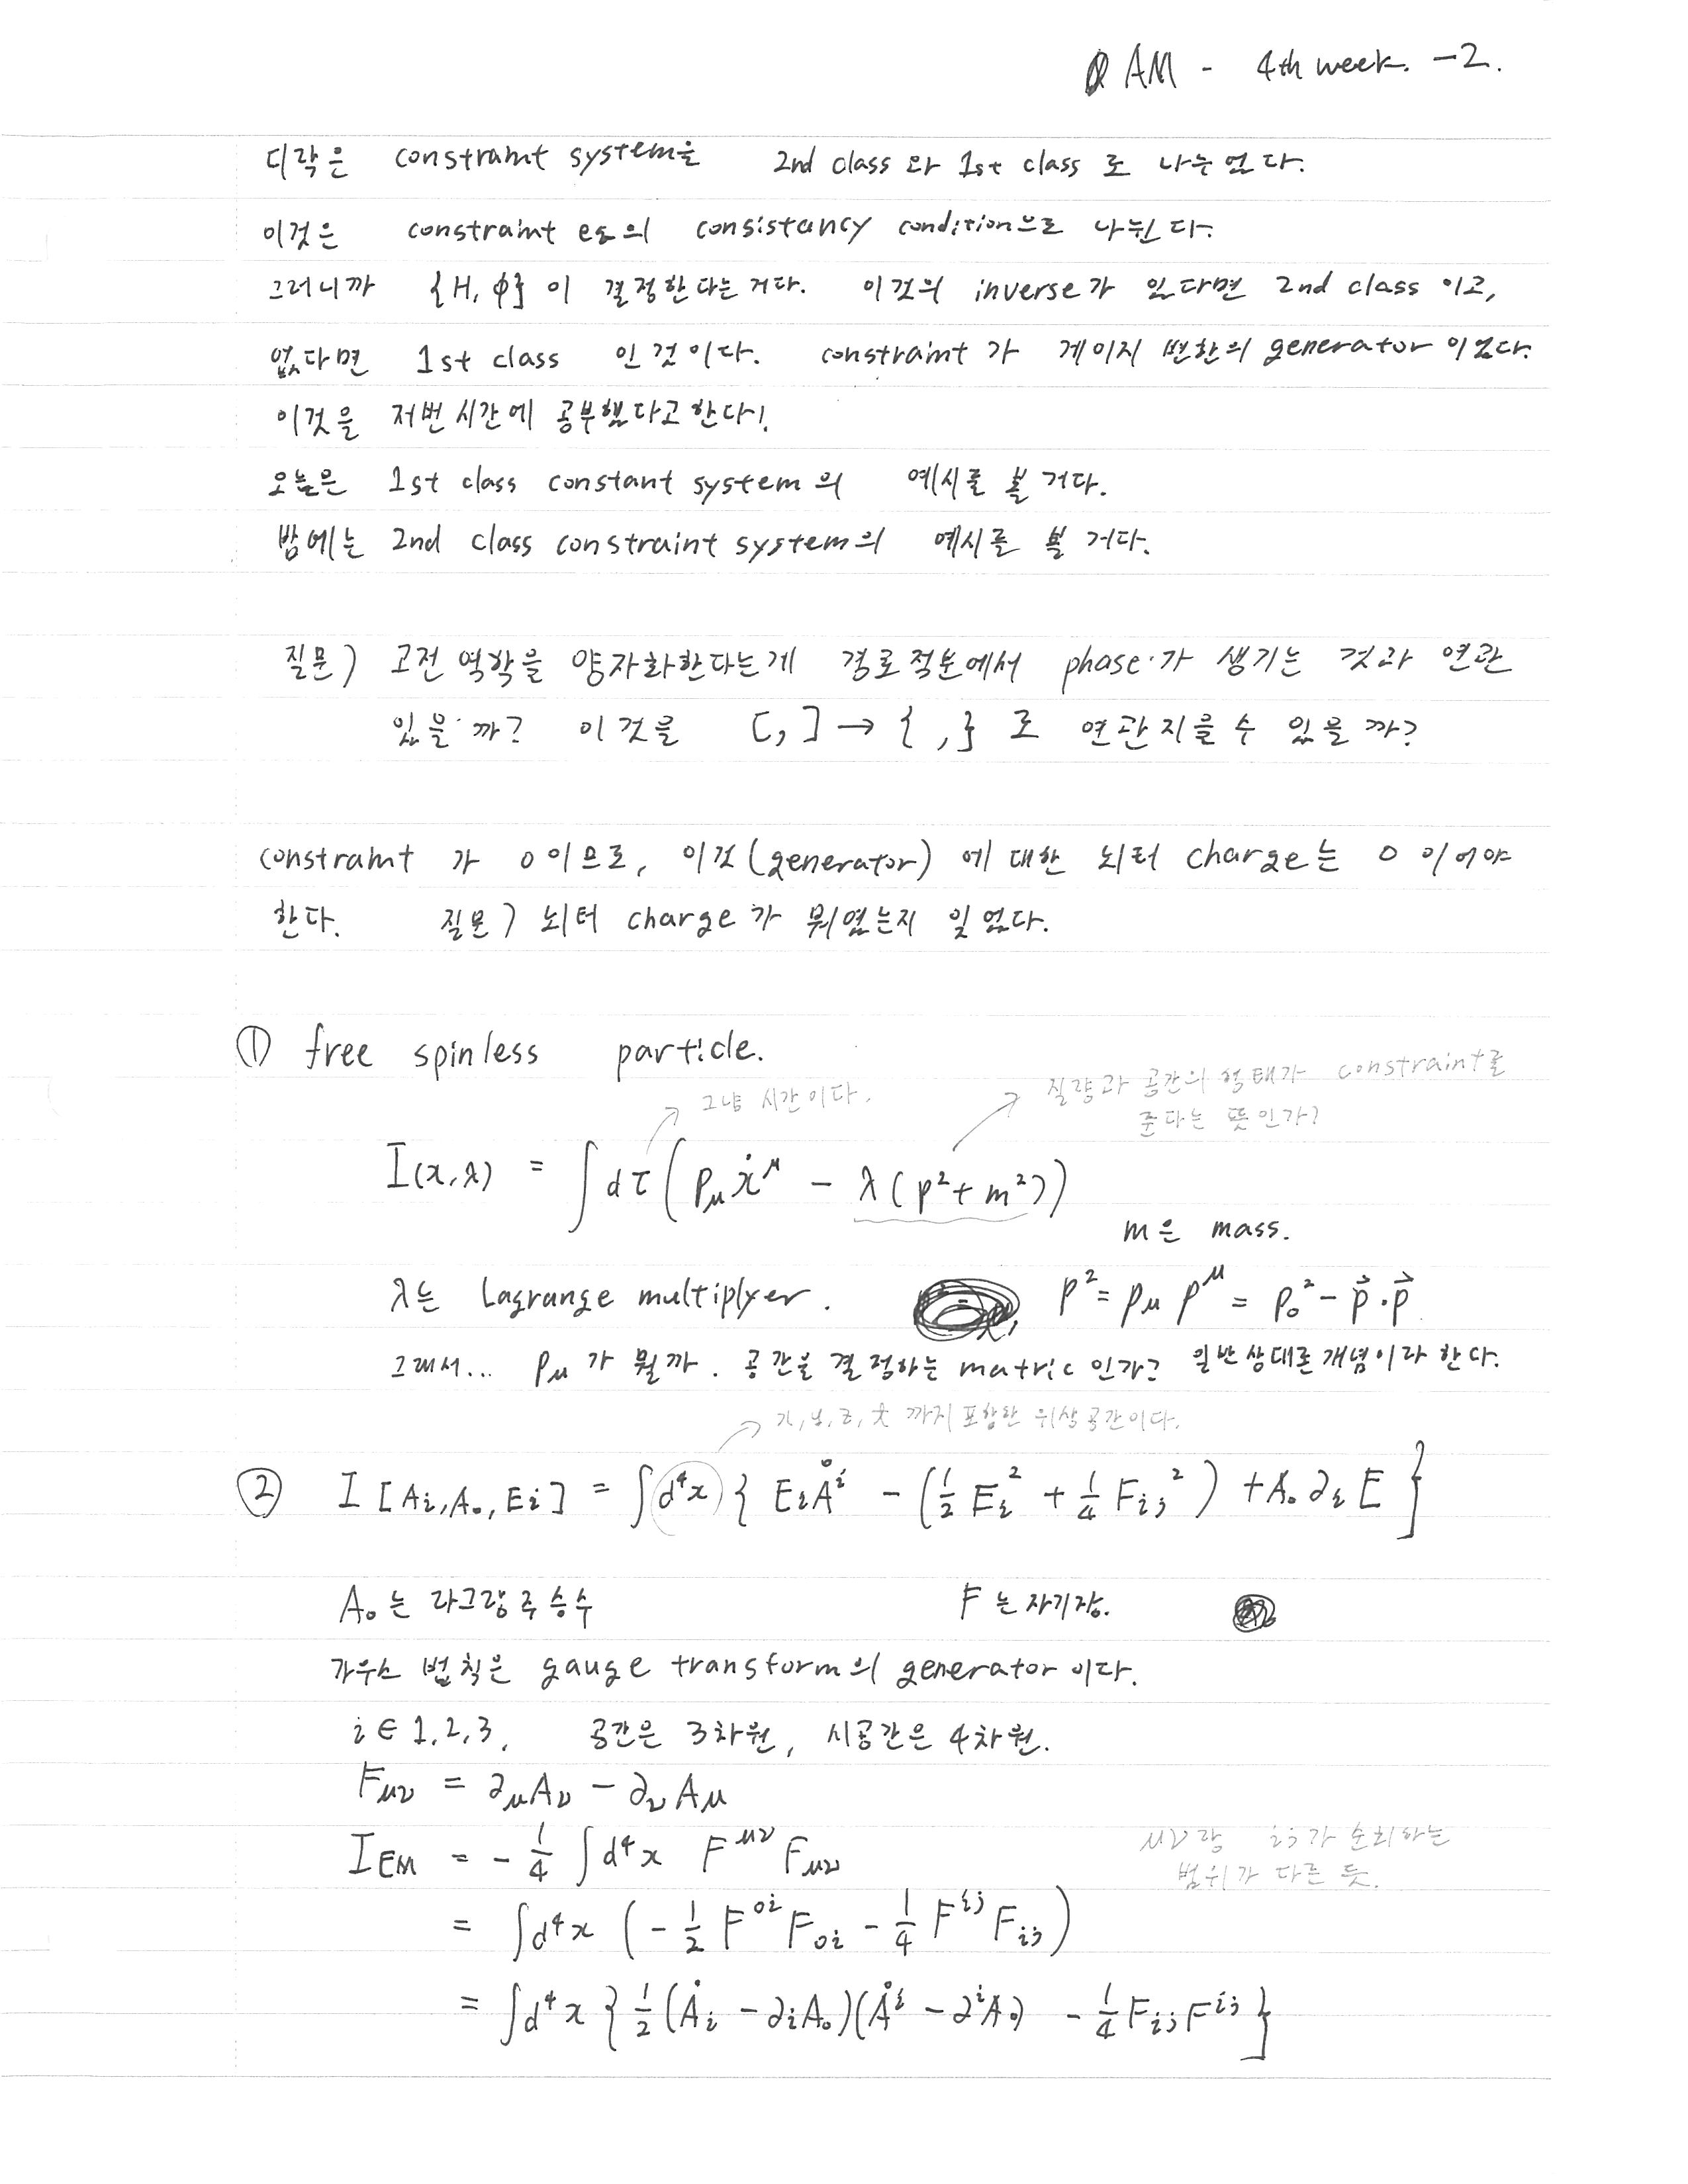 QAM - 4th week. -2.
디락은 constraint system을 2nd class 와 1st class 로 나누었다.
이것은 constraint eq의 consistancy condition으로 나뉜다.
그러니까 {H, φ} 이 결정한다는거다. 이것의 inverse가 있다면 2nd class 이고,
없다면 1st class 인 것이다. constraint 가 게이지 변환의 generator 이었다.
이것을 저번 시간에 공부했다고한다!
오늘은 1st class constant system의 예시를 볼 거다.
밤에는 2nd class constraint system의 예시를 볼 거다.
질문) 고전 역학을 양자화한다는게 경로적분에서 phase가 생기는 것과 연관
있을까? 이것을 [,] → { ,} 로 연관지을수 있을까?
constraint 가 0이므로, 이것(generator)에 대한 뇌터 charge는 0 이어야
한다. 질문) 뇌터 charge가 뭐였는지 잊었다.
① free spinless particle.
그냥 시간이다.
질량과 공간의 형태가 constraint를
준다는 뜻인가?
I(x,λ) = ∫dτ(p_μ ẋ^μ - λ(p²+m²))
m은 mass.
λ는 Lagrange multiplyer. p² = p_μ p^μ = p₀² - p⃗·p⃗
그래서... p_μ가 뭘까. 공간을 결정하는 matric 인가? 일반상대론개념이라 한다.
x, y, z, t 까지 포함한 위상공간이다.
② I[A_i, A₀, E_i] = ∫d⁴x { E_i Ȧ^i - (½ E_i² + ¼ F_ij²) + A₀ ∂_i E }
A₀는 라그랑주 승수 F는 자기장.
가우스 법칙은 gauge transform의 generator 이다.
i ∈ 1, 2, 3, 공간은 3차원, 시공간은 4차원.
F_μν = ∂_μ A_ν - ∂_ν A_μ
I_EM = -¼ ∫d⁴x F^μν F_μν
μν랑 ij가 순회하는
범위가 다른 듯.
= ∫d⁴x (-½ F^0i F_0i - ¼ F^ij F_ij)
= ∫d⁴x {½(Ȧ_i - ∂_i A₀)(Ȧ^i - ∂^i A₀) - ¼ F_ij F^ij}